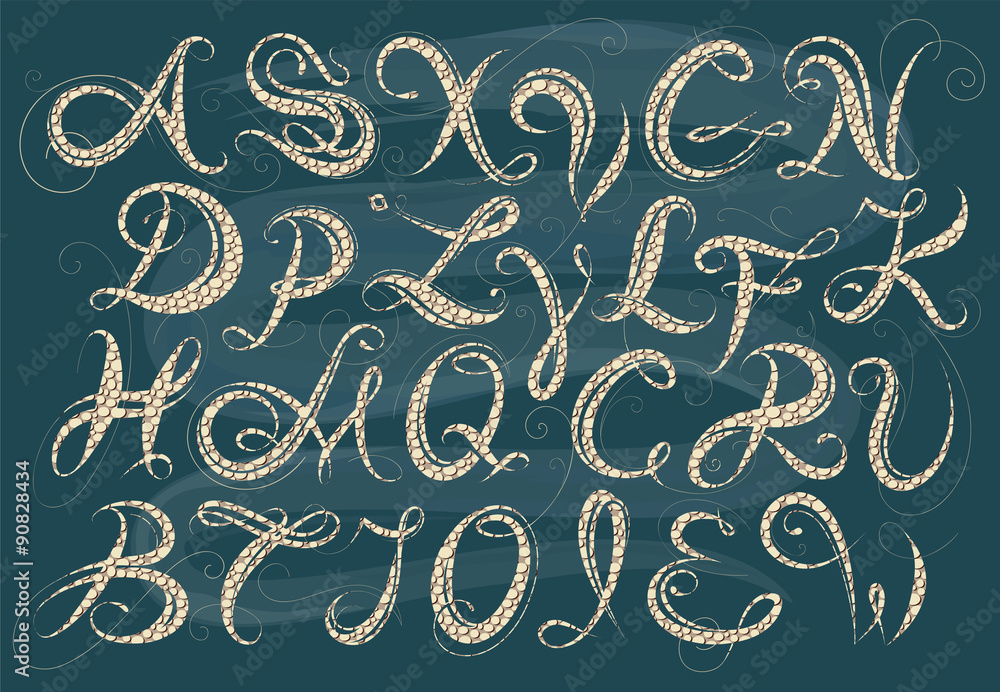 A S X V G N
D P Z Y L F K
H M Q C R U
B T J O I E W
Adobe Stock | #90828434